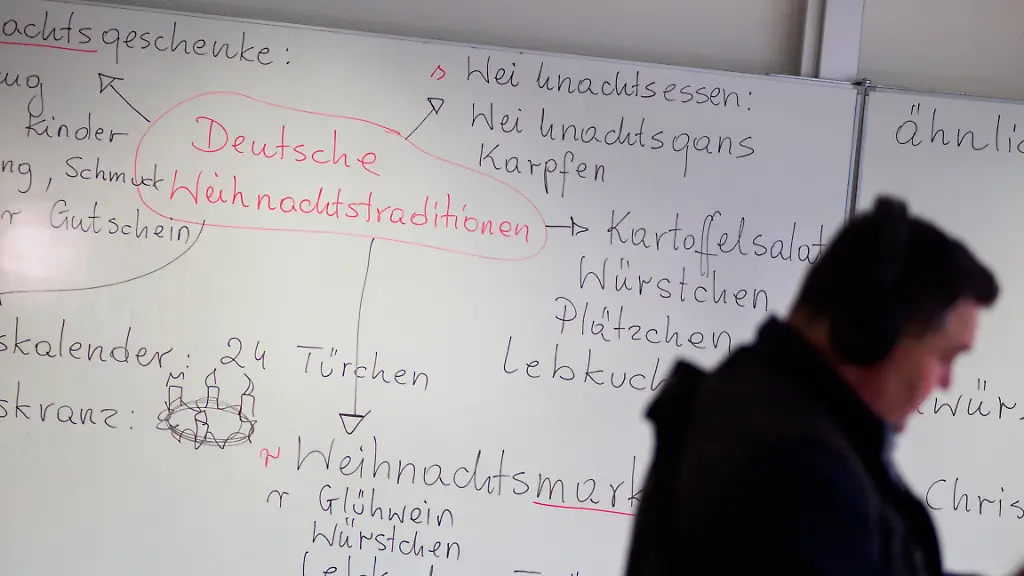 achtsgeschenke:
ug
Kinder
ng, Schmuck
r Gutschein
Deutsche
Weihnachtstraditionen
Weihnachtsessen:
Weihnachtsgans
Karpfen
Kartoffelsalat
Würstchen
Plätzchen
Lebkuch
skalender: 24 Türchen
skranz:
Weihnachtsmark
Glühwein
Würstchen
ähnlic
würs
Chris